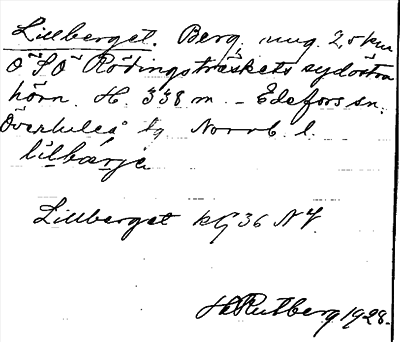 Lillberget. Berg, ung. 2,5 km
OSO Rödingsträskets sydöstra
hörn. H. 338 m. – Edefors sn.
Överluleå tg Norrb. l.
lilbærje
Lillberget kG 36 NV.
H Rutberg 1928.